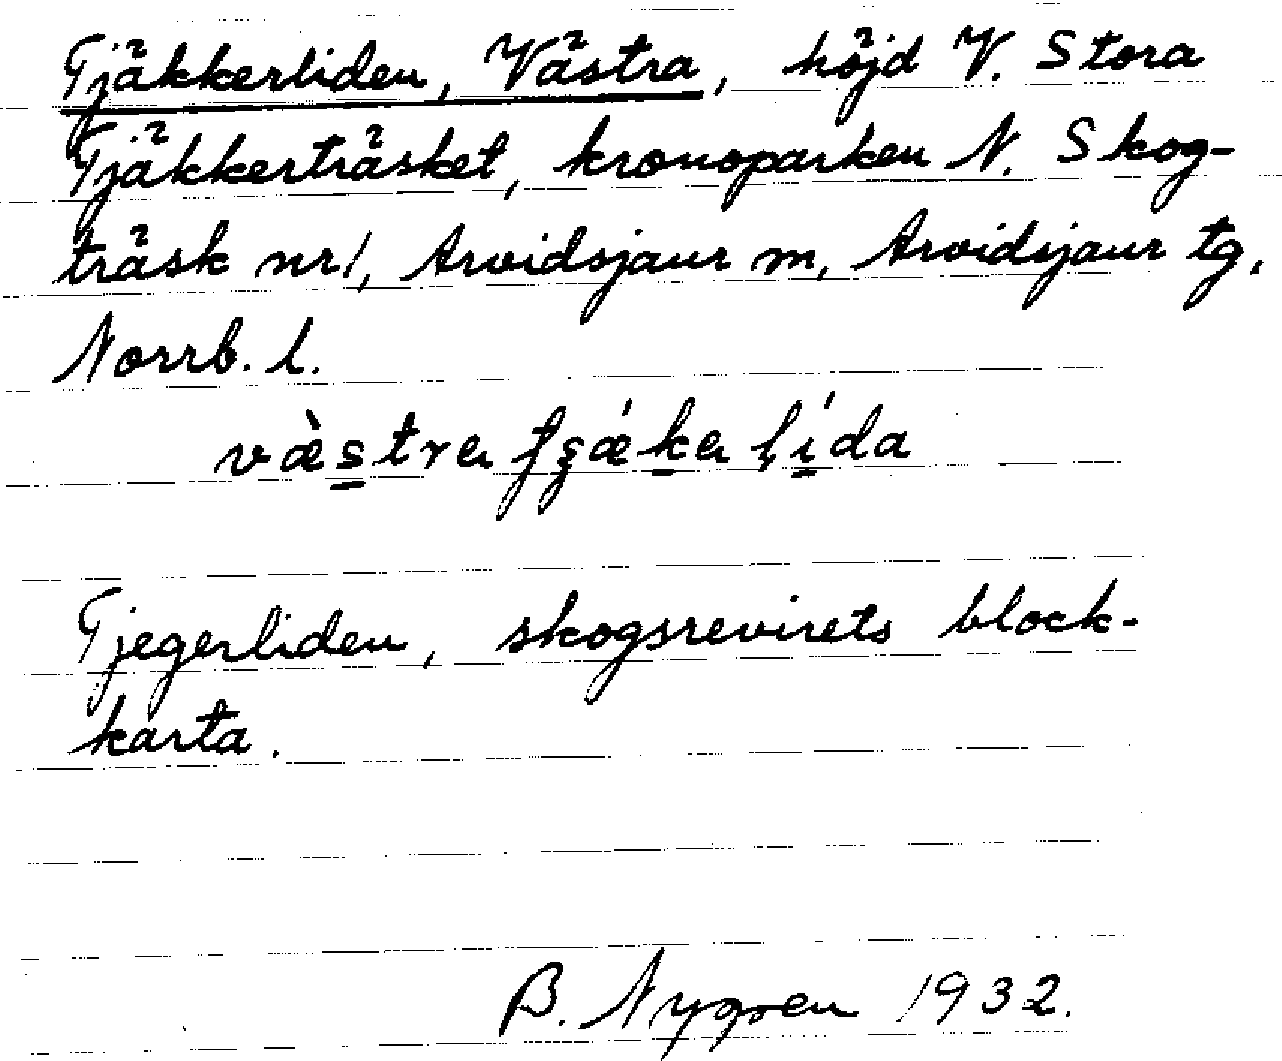 Tjäkkerliden, Västra, höjd V. Stora
Tjäkkerträsket, kronoparken N. Skog-
träsk nr 1, Arvidsjaur m, Arvidsjaur tg,
Norrb. l.
væ̀s̲tra tʂǽk̲a lí̲da
Tjegerliden, skogsrevirets block-
karta.
B. Nygren 1932.